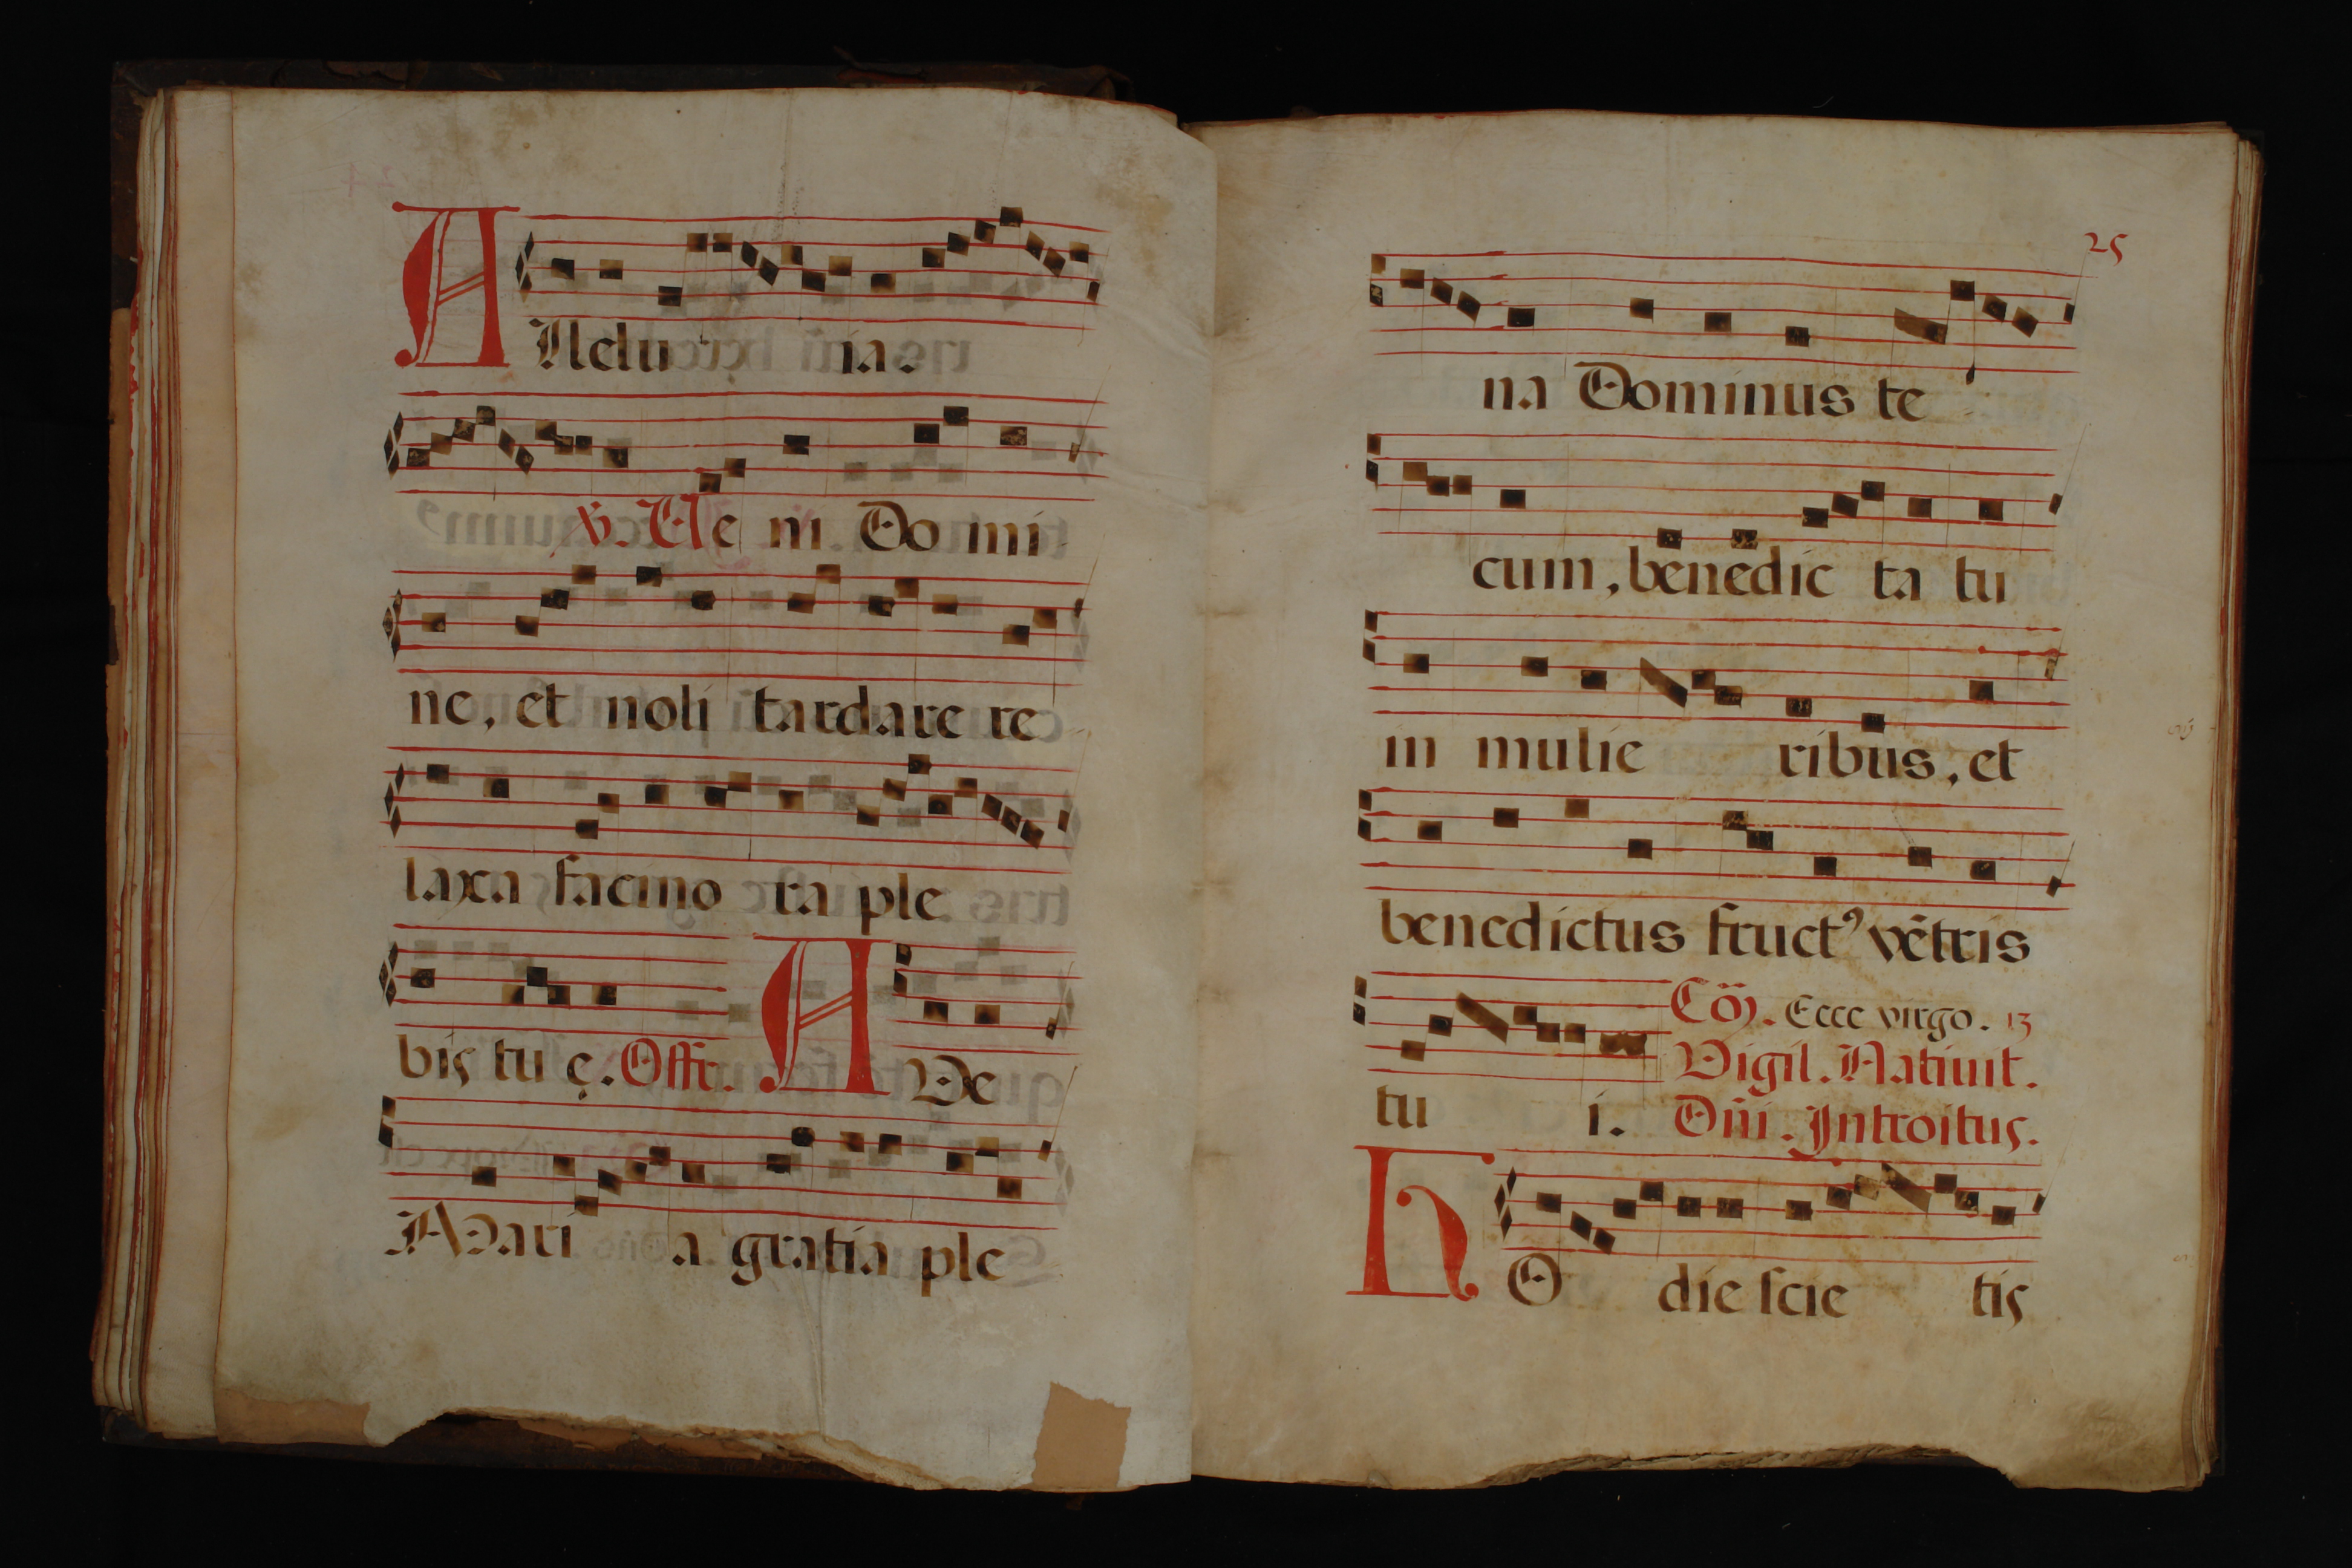 Alleluia.
℣. Ve ni Do mi
ne, et noli tardare re
laxa facino ra ple
bis tu ę. Offr. A Ve
Mari a gratia ple
25
na Dominus te
cum, benedic ta tu
in mulie ribus, et
benedictus fructꝰ vẽtris
tu i. Cõ. Ecce virgo. 13
Vigil. Nativit.
Dñi. Introitus.
HO die scie tis